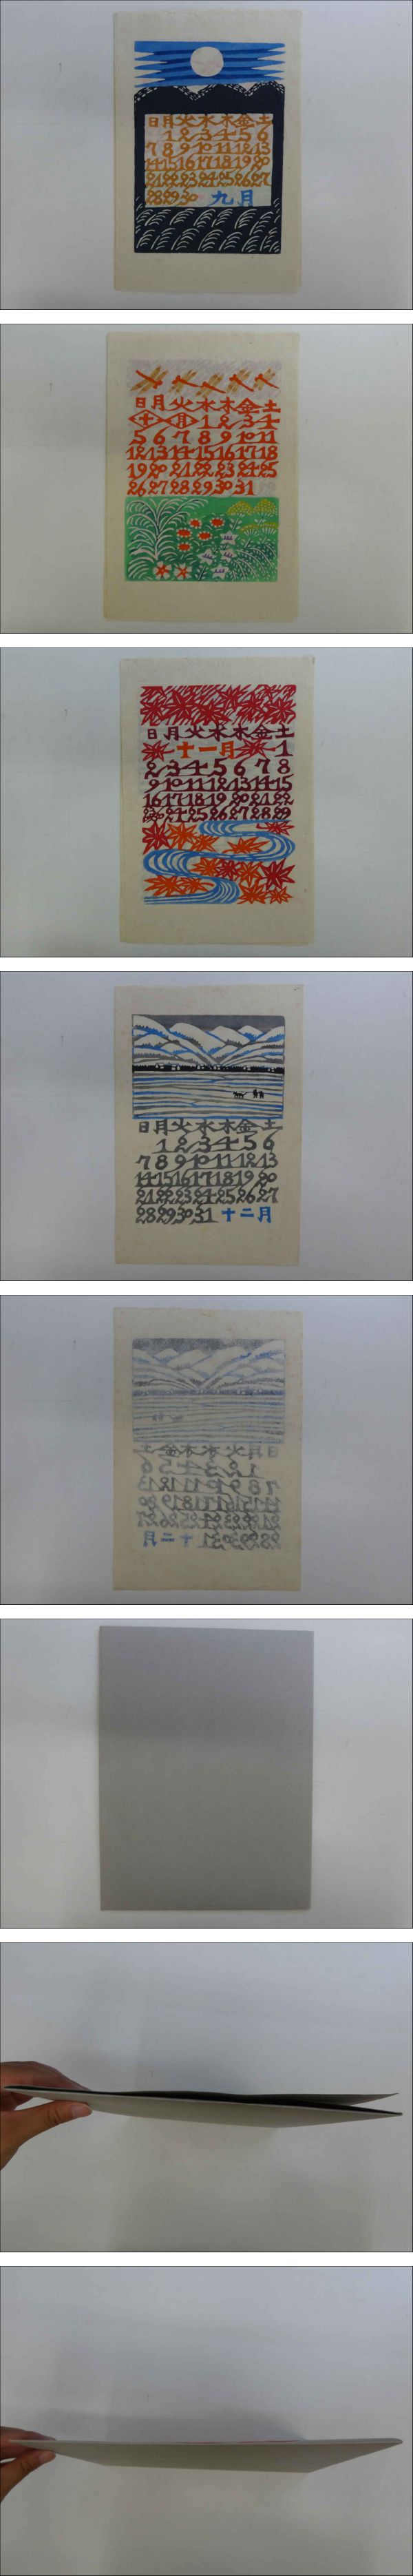 日月火水木金土
1 2 3 4 5 6
7 8 9 10 11 12 13
14 15 16 17 18 19 20
21 22 23 24 25 26 27
28 29 30 九月
日月火水木金土
十月 1 2 3 4
5 6 7 8 9 10 11
12 13 14 15 16 17 18
19 20 21 22 23 24 25
26 27 28 29 30 31
日月火水木金土
十一月 1
2 3 4 5 6 7 8
9 10 11 12 13 14 15
16 17 18 19 20 21 22
24 25 26 27 28 29
日月火水木金土
1 2 3 4 5 6
7 8 9 10 11 12 13
14 15 16 17 18 19 20
21 22 23 24 25 26 27
28 29 30 31 十二月